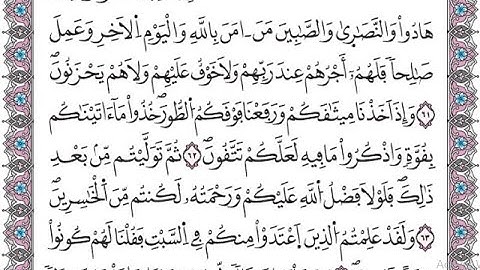 هَادُواْ وَالنَّصَٰرٜىٰ وَالصَّٰبِينَ مَنَ ـ امَنَ بِاللَّهِ وَالْيَوْمِ اِلَاخِرِ وَعَمِلَ
صَٰلِحاً فَلَهُمُۥٓ أَجْرُهُمْ عِندَ رَبِّهِمْ وَلَا خَوْفٌ عَلَيْهِمْ وَلَا هُمْ يَحْزَنُونَۖ
٦١ وَإِذَ اَخَذْنَا مِيثَٰقَكُمْ وَرَفَعْنَا فَوْقَكُمُ الطُّورَۖ خُذُواْ مَآ ءَاتَيْنَٰكُم
بِقُوَّةٖ وَاذْكُرُواْ مَا فِيهِ لَعَلَّكُمْ تَتَّقُونَۖ ٦٢ ثُمَّ تَوَلَّيْتُم مِّنۢ بَعْدِ
ذَٰلِكَۖ فَلَوْلَا فَضْلُ اللَّهِ عَلَيْكُمْ وَرَحْمَتُهُۥ لَكُنتُم مِّنَ اَلْخَٰسِرِينَۖ
٦٣ وَلَقَدْ عَلِمْتُمُ الذِينَ اَعْتَدَوْاْ مِنكُمْ فِي السَّبْتِ فَقُلْنَا لَهُمْ كُونُواْ